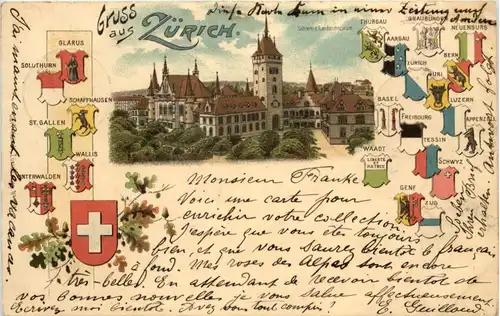 Gruss
aus
ZÜRICH.
Schweiz. Landesmuseum
GLARUS
SOLOTHURN
SCHAFFHAUSEN
ST. GALLEN
WALLIS
UNTERWALDEN
THURGAU
GRAUBÜNDEN
NEUENBURG
AARGAU
BERN
ZÜRICH
URI
LUZERN
BASEL
FREIBOURG
APPENZELL
TESSIN
WAADT
LIBERTÉ
ET
PATRIE
SCHWYZ
GENF
ZUG
Diese Karte kam in einer Zeitung auf
Monsieur Franke
Voici une carte pour
enrichir votre collection.
J'espère que vous êtes toujours
bien, et que vous saurez bientôt le français
à fond. Mes roses des Alpes sont encore
très-belles. En attendant de recevoir bientôt de
vos bonnes nouvelles je vous salue affectueusement.
Ecrivez moi bientôt. Avez vous tout compris? E. Guilloud